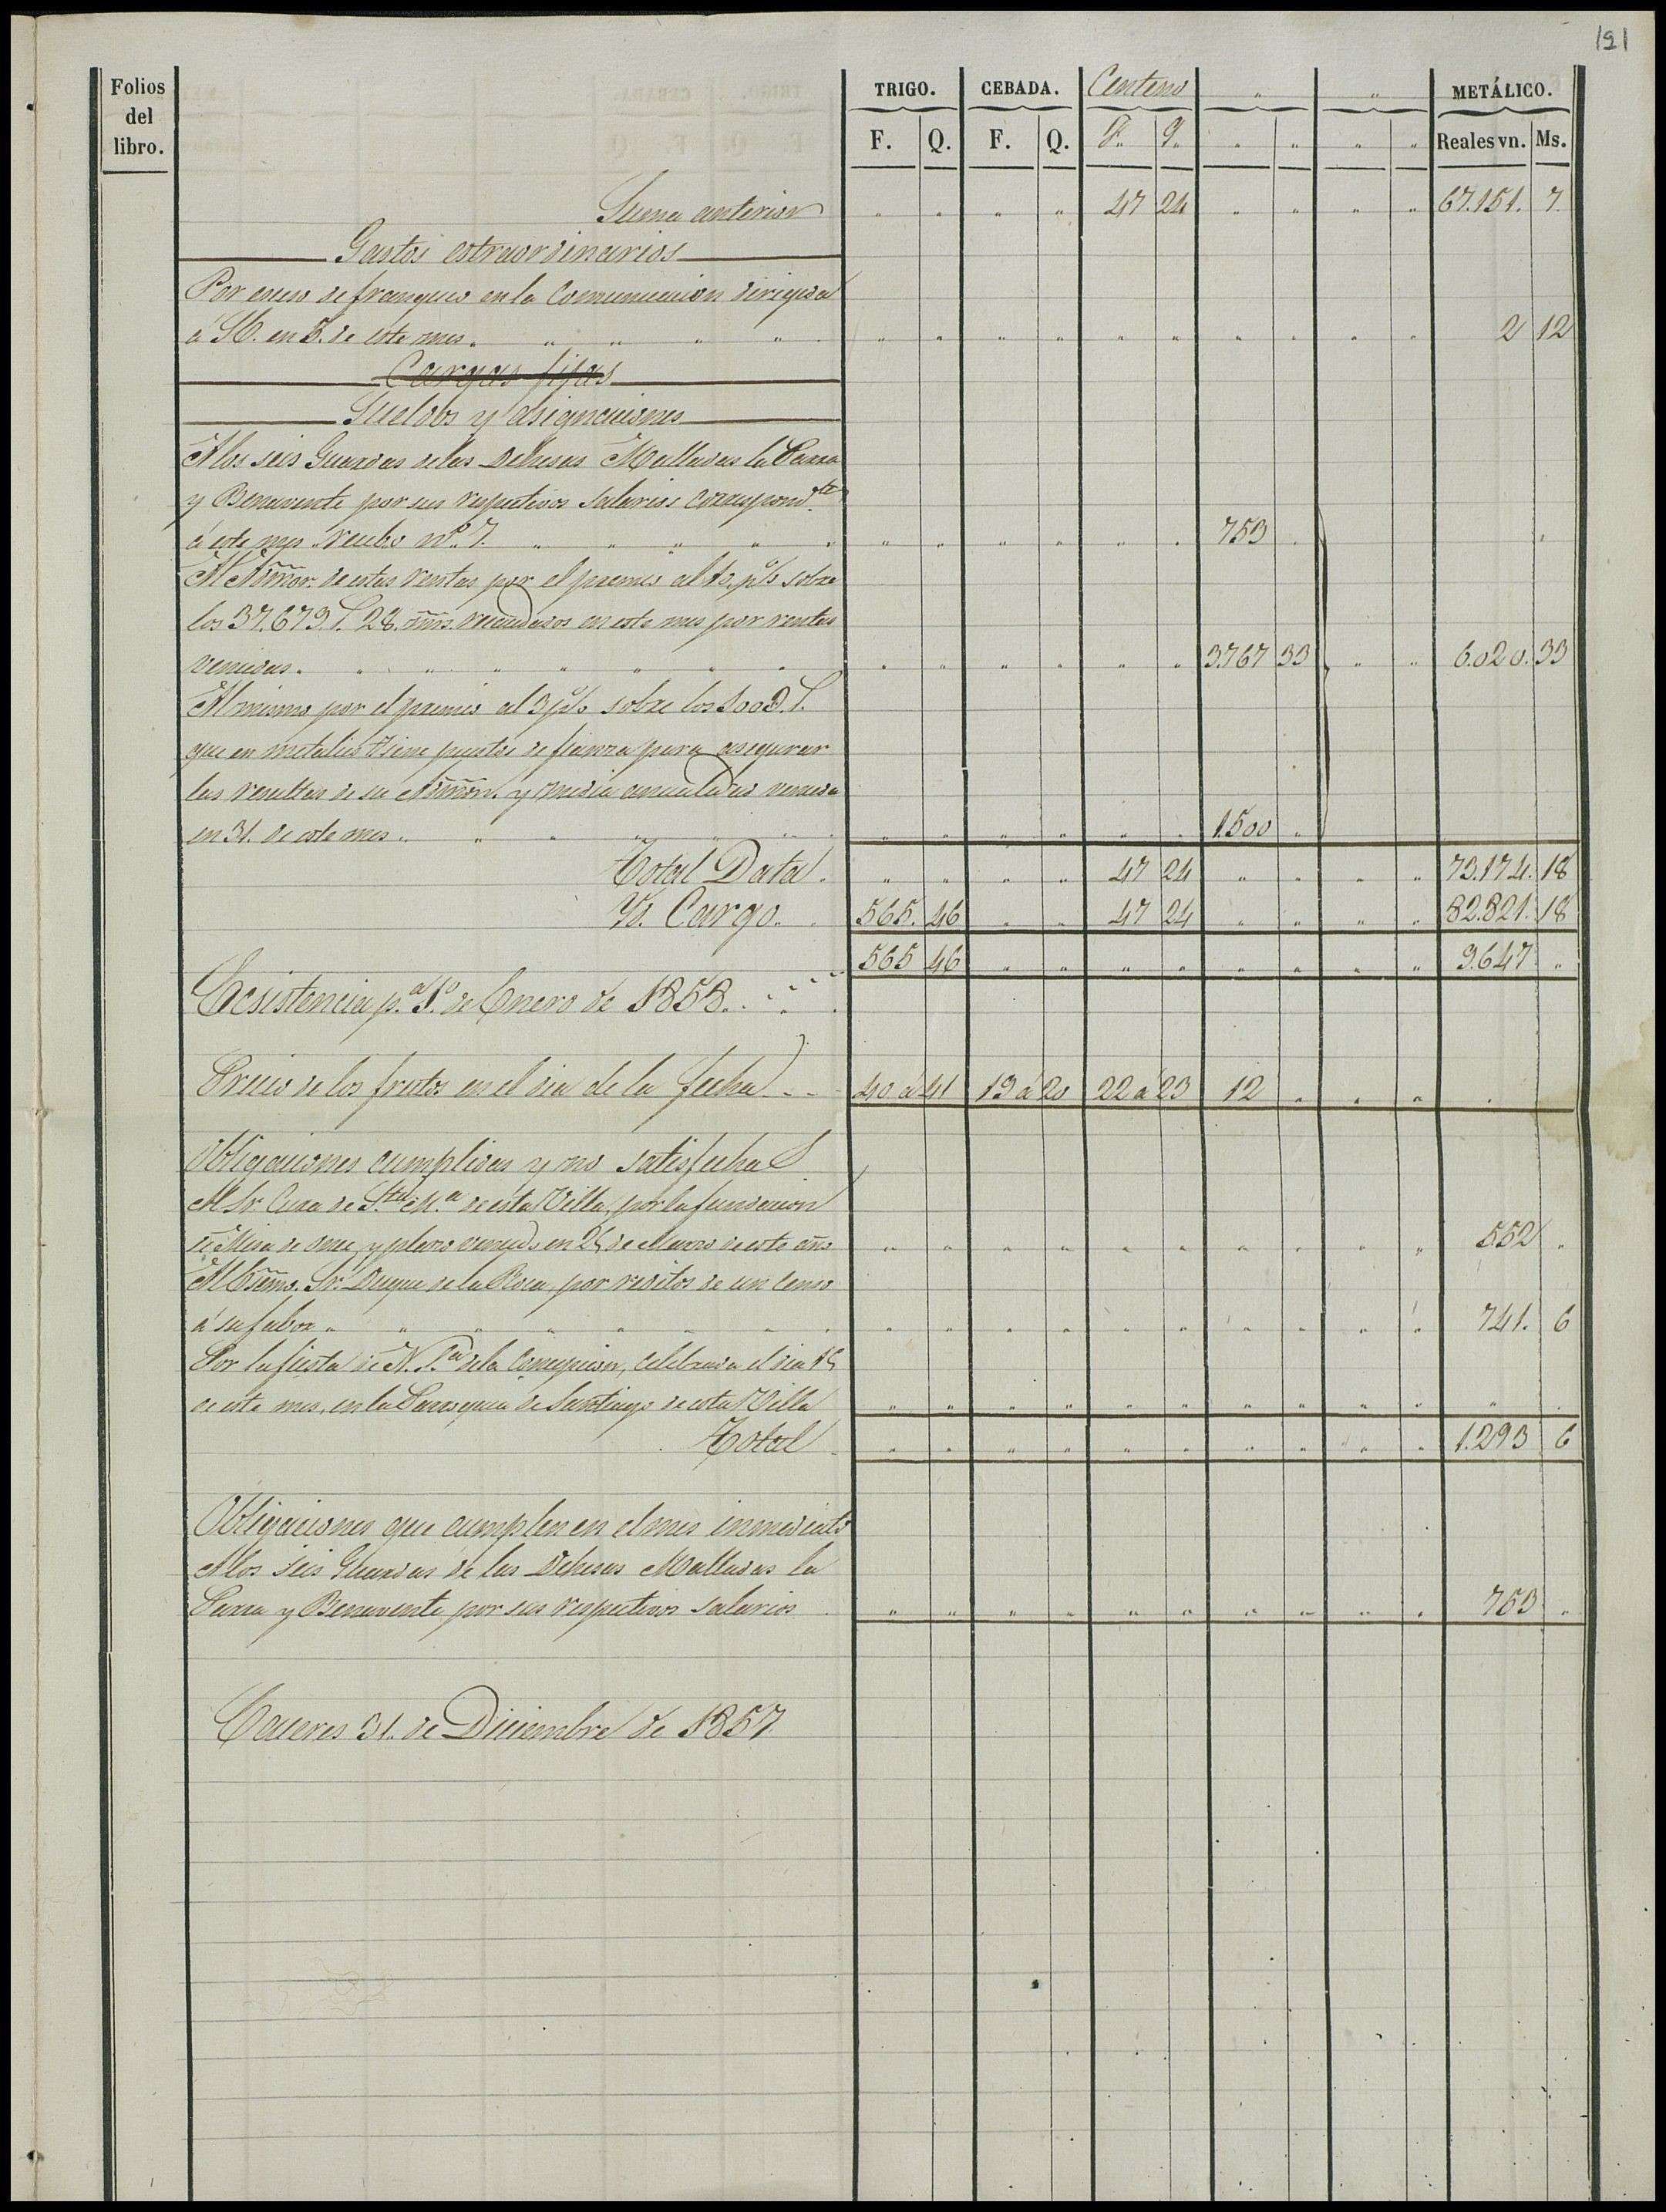 121
Folios del libro. TRIGO. CEBADA. Centeno " " METÁLICO.
F. Q. F. Q. F. Q. " " " " Reales vn. Ms.
Suma anterior " " " " 47 24 " " " " 67.151. 7.
Gastos estraordinarios
Por esceso de franqueo en la Comunicacion dirigida
á S.E. en 5. de este mes " " " " " " " " " " " 2 12
Cargas fijas
Sueldos y asignaciones
A los seis Guardas de las Dehesas Malladas la Parra
y Benavente por sus respectivos salarios correspond.tes
á este mes recibo nº. 7. " " " " " " 753 "
Al Admor. de estas rentas por el premio al 10. p% sobre
los 37.679 r. 28. mrs. recaudados en este mes por rentas
vencidas " " " " " " 3.767 33 " " 6.020. 33
Al mismo por el premio al 3 p% sobre los 100.000 r.
que en metalico tiene puestos de fianza para asegurar
las resultas de su Admon. y media anualidad vencida
en 31. de este mes " " " " " " 1.500 "
Total Data. " " " " 47 24 " " " " 73.174. 18
Yd. Cargo. 565. 46 " " 47 24 " " " " 82.821. 18
565 46 " " " " " " " " 9.647 "
Ecsistencia p.a 1.º de Enero de 1858.
Precio de los frutos en el dia de la fecha 40 á 41 19 á 20 22 á 23 12 " " " "
Obligaciones cumplidas y no satisfechas
Al Sr. Cura de S.ta M.a de esta Villa, por la fundacion
de Misa de once, y plazo vencido en 25 de Marzo de este año " " " " " " " " " " 552 "
Al Escmo. Sr. Duque de la Roca, por reditos de un censo
á su fabor " " " " " " " " " " 741. 6
Por la fiesta de N. S.ra de la Concepcion, celebrada el dia 15
de este mes, en la Parroquia de Santiago de esta Villa " " " " " " " " " " " "
Total " " " " " " " " " " 1.293 6
Obligaciones que cumplen en el mes inmediato
A los seis Guardas de las Dehesas Malladas la
Parra y Benavente por sus respectivos salarios " " " " " " " " " " 753 "
Caceres 31. de Diciembre de 1857